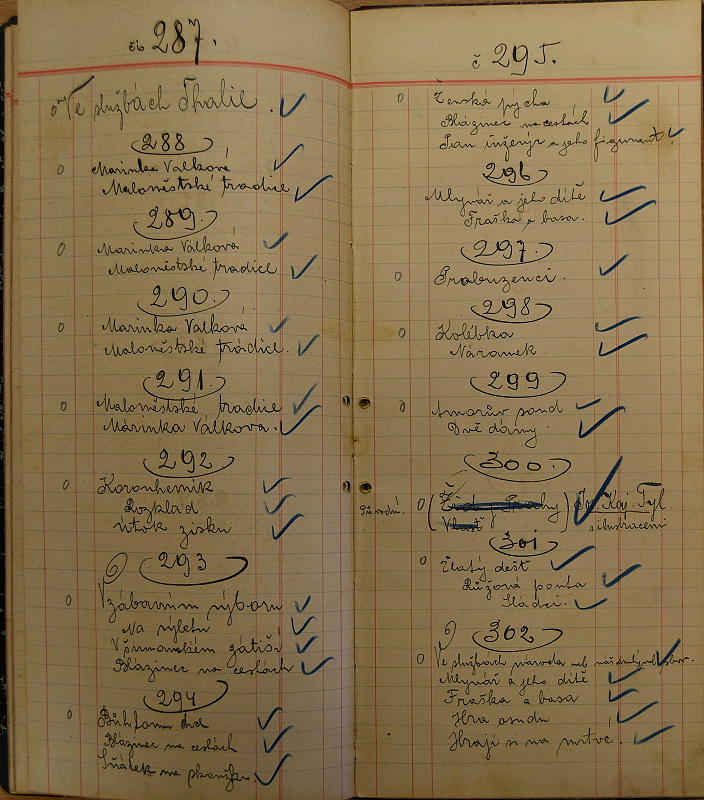 čís 287.
Ve službách Thalie.
288
Marinka Válková
Maloměstské tradice
289.
Marinka Válková
Maloměstské tradice
290
Marinka Válková
Maloměstské tradice.
291.
Maloměstské tradice
Marinka Válkova.
292
Korouhevník
Rozklad
Útok zisku
293
V zábavním výboru
Na výletu
V šumavském zátiší
Blázinec na cestách
294
Blázinec na cestách
Sňatek na zkoušku
č 295.
Ženská pýcha
Blázinec na cestách
Pan inženýr a jeho figurant.
296
Mlynář a jeho dítě
Fraška a basa.
297.
Probuzenci.
298
Kolébka
Náramek.
299
Amorův soud
Dvě dámy.
300.
Původní. (Žid z Prahy) Jos. Kaj. Tyl.
Vlasť s ilustracemi
301
Zlatý dešť
Růžová pouta
Sládci.
302
Ve službách národa neb
Mlynář a jeho dítě
Fraška a basa
Hra osudu
Hrají si na mrtvé.